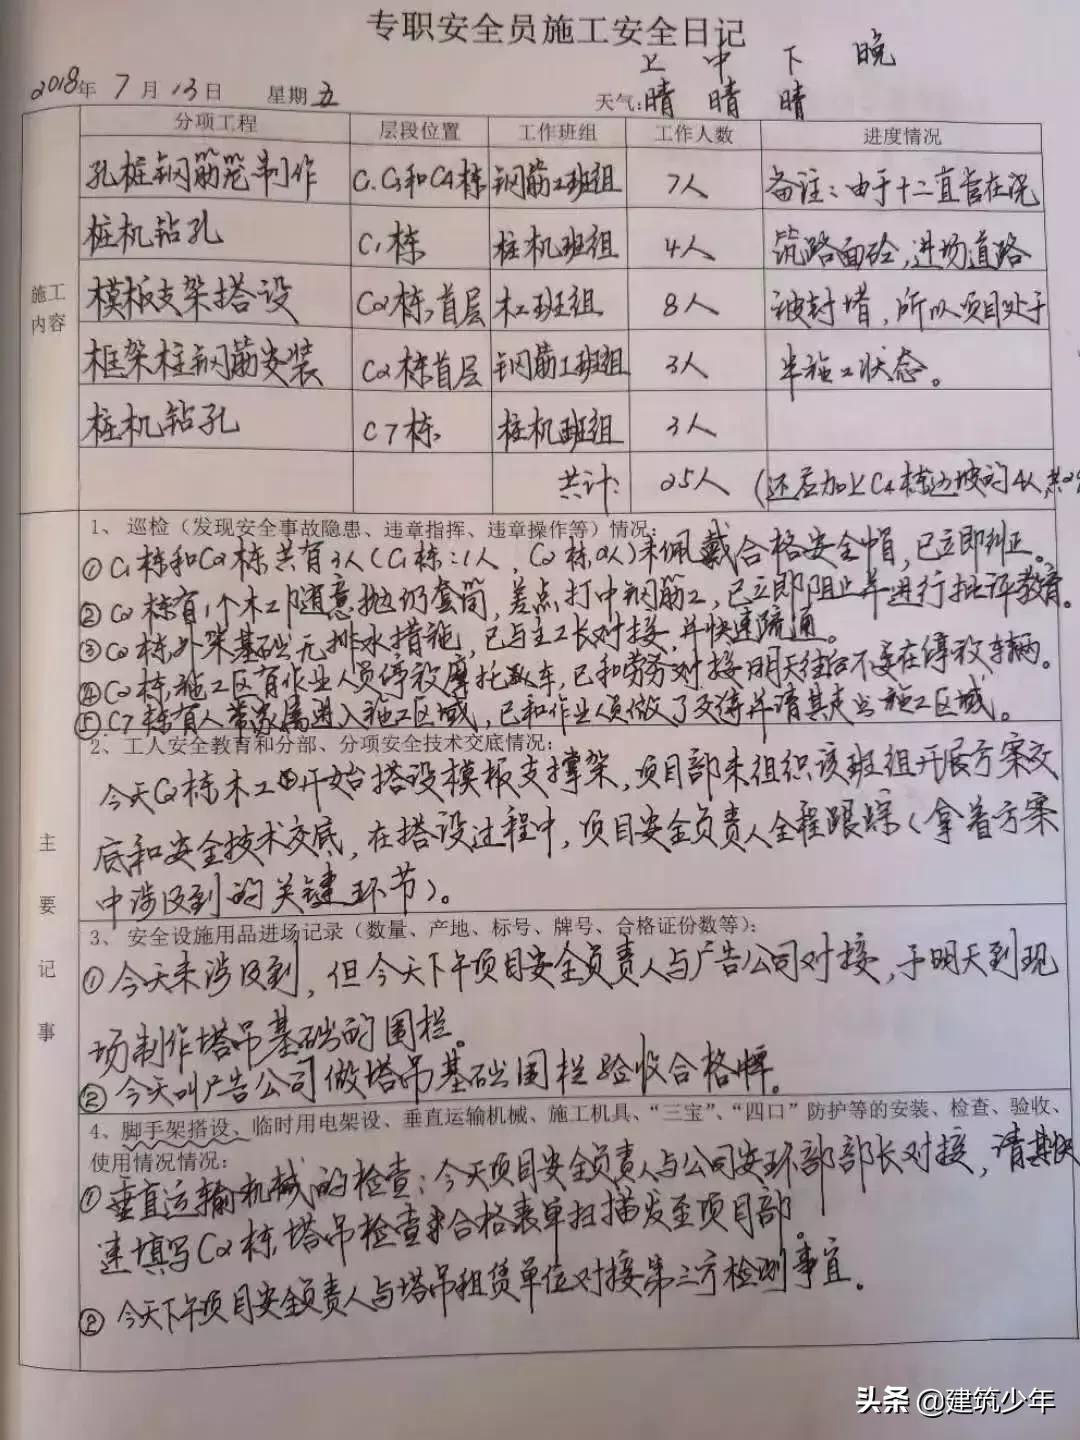 专职安全员施工安全日记
上 中 下 晚
2018年 7月13日 星期五 天气:晴 晴 晴
分项工程 层段位置 工作班组 工作人数 进度情况
孔桩钢筋笼制作 C1、C3和C4栋 钢筋工班组 7人 备注：由于十二直管在浇
桩机钻孔 C1栋 桩机班组 4人 筑路面砼,进场道路
施工内容
模板支架搭设 C2栋首层 木工班组 8人 被封堵，所以项目处于
框架柱钢筋安装 C2栋首层 钢筋工班组 3人 半施工状态。
桩机钻孔 C7栋 桩机班组 3人
共计: 25人 (还后加上C4栋边坡的4人,共2
1、巡检（发现安全事故隐患、违章指挥、违章操作等）情况:
①C1栋和C2栋共有3人(C1栋:1人，C2栋2人)未佩戴合格安全帽,已立即纠正。
②C2栋有1个木工随意抛扔套筒,差点打中钢筋工,已立即阻止并进行批评教育。
③C2栋外架基础无排水措施,已与主工长对接,并快速疏通。
④C2栋施工区有作业人员停放摩托车,已和劳务对接明天往后不要在停放车辆。
⑤C7栋有人带家属进入施工区域,已和作业人员做了交待并请其走出施工区域。
2、工人安全教育和分部、分项安全技术交底情况:
今天C2栋木工开始搭设模板支撑架,项目部来组织该班组开展方案交
底和安全技术交底,在搭设过程中,项目安全负责人全程跟踪(拿着方案
中涉及到的关键环节)。
主要记事
3、安全设施用品进场记录（数量、产地、标号、牌号、合格证份数等）:
①今天未涉及到,但今天下午项目安全负责人与广告公司对接,于明天到现
场制作塔吊基础的围栏。
②今天叫广告公司做塔吊基础围栏验收合格牌。
4、脚手架搭设、临时用电架设、垂直运输机械、施工机具、“三宝”、“四口”防护等的安装、检查、验收、
使用情况情况:
①垂直运输机械的检查:今天项目安全负责人与公司安环部部长对接,请其快
速填写C2栋塔吊检查合格表单扫描发至项目部。
②今天下午项目安全负责人与塔吊租赁单位对接第三方检测事宜。
头条 @建筑少年